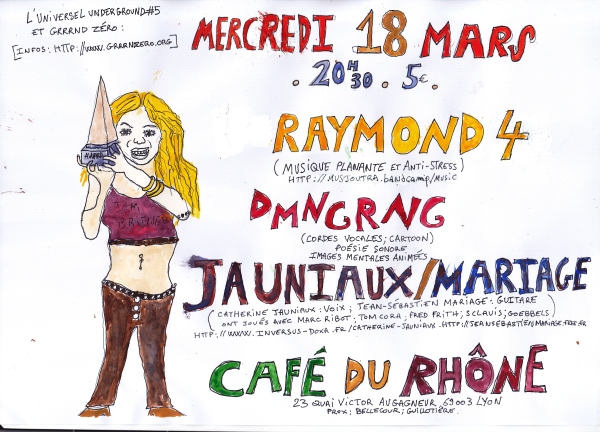 L'UNIVERSEL UNDERGROUND#5
ET GRRRND ZÉRO:
[INFOS: HTTP://WWW.GRRRNDZERO.ORG]
MERCREDI 18 MARS
. 20H30 . 5€.
RAYMOND 4
(MUSIQUE PLANANTE ET ANTI-STRESS)
HTTP://MUSJOUTRA.bandcamp/MUSIC
DMNGRNG
(CORDES VOCALES; CARTOON)
POÉSIE SONORE
IMAGES MENTALES ANIMÉES
JAUNIAUX/MARIAGE
(CATHERINE JAUNIAUX: VOIX; JEAN-SÉBASTIEN MARIAGE: GUITARE)
ONT JOUÉS AVEC MARC RIBOT. TOM CORA, FRED FRITH; SCLAVIS; GOEBBELS)
HTTP://WWW.INVERSUS-DOXA.FR/CATHERINE-JAUNIAUX.HTTP://JEANSEBASTIENMARIAGE.FREE.FR
CAFÉ DU RHÔNE
23 QUAI VICTOR AUGAGNEUR 69003 LYON
PROX; BELLECOUR; GUILLOTIÈRE.